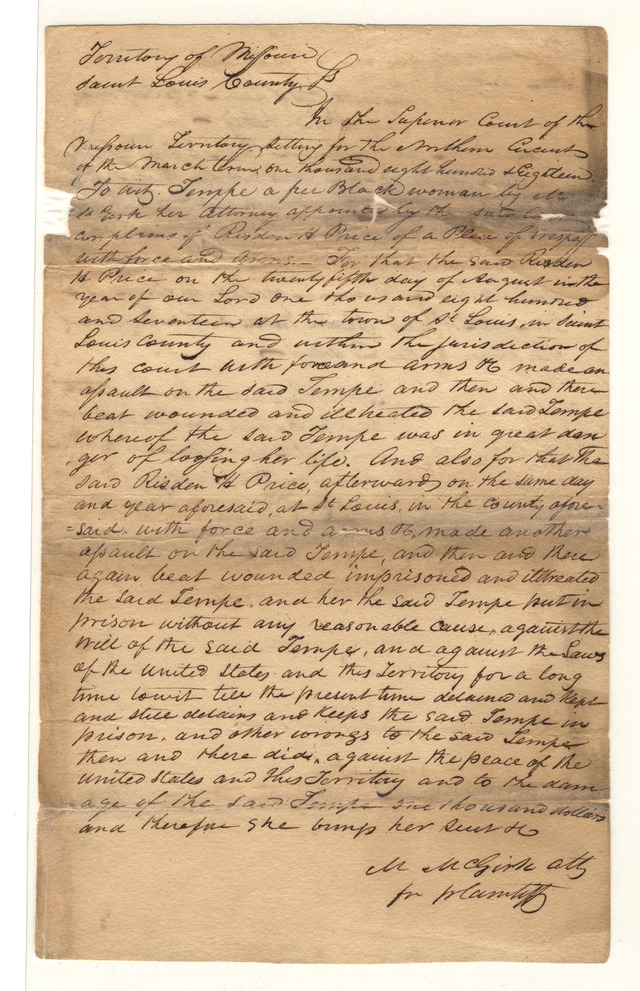 Territory of Missouri
Saint Louis County Ss
In the Superior Court of the
Missouri Territory Sitting for the Northern Circuit
of the March term, one thousand eight hundred & Eighteen
To wit, Tempe a free Black woman by M
McGirk her Attorney appointed by the said
complains of Risdon H Price of a Plea of trespass
with force and arms — For that the said Risden
H Price on the twenty fifth day of August in the
year of our Lord one thousand eight hundred
and Seventeen at the town of St Louis, in Saint
Louis County and within the jurisdiction of
this court with force and arms &c made an
assault on the said Tempe and then and there
beat wounded and illtreated the said Tempe
whereof the said Tempe was in great dan
ger of loosing her life. And also for that the
said Risden H Price, afterwards on the same day
and year aforesaid, at St Louis, in the County afore
=said, with force and arms &c, made another
assault on the said Tempe, and then and there
again beat wounded imprisoned and illtreated
the said Tempe, and her the said Tempe put in
prison without any reasonable cause, against the
will of the said Tempe, and against the Laws
of the United States and this Territory for a long
time towit till the present time detained and kept
and still detains and keeps the said Tempe in
prison, and other wrongs to the said Tempe
then and there did, against the peace of the
United States and this Territory and to the dam
age of the said Tempe one thousand dollars
and therefore she brings her suit &c
M McGirk atty
for plaintiff